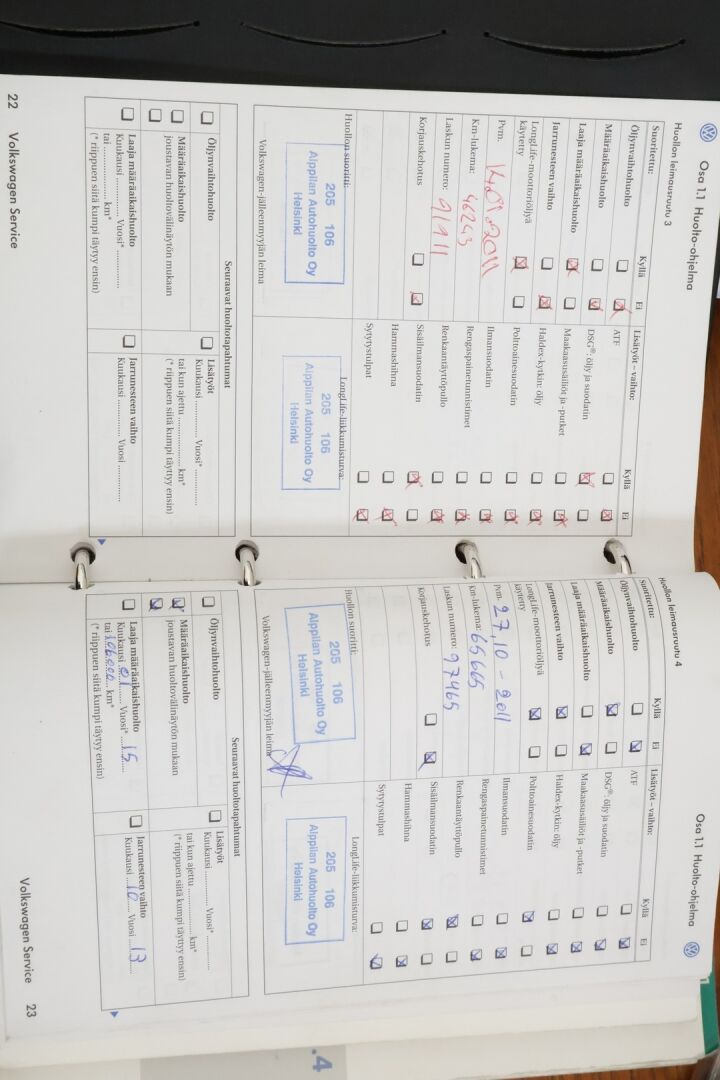 Osa 1.1 Huolto-ohjelma
Huollon leimausruutu 3
Suoritettu: Kyllä Ei
Öljynvaihtohuolto
Määräaikaishuolto
Laaja määräaikaishuolto
Jarrunesteen vaihto
LongLife-moottoriöljyä
käytetty
Pvm. 14.01.2011
Km-lukema: 46243
Laskun numero: 91911
Korjauskehotus
Lisätyöt – vaihto: Kyllä Ei
ATF
DSG®: öljy ja suodatin
Maakaasusäiliöt ja -putket
Haldex-kytkin: öljy
Polttoainesuodatin
Ilmansuodatin
Rengaspainetunnistimet
Renkaantäyttöpullo
Sisäilmansuodatin
Hammashihna
Sytytystulpat
Huollon suoritti:
205 106
Alppilan Autohuolto Oy
Helsinki
Volkswagen-jälleenmyyjän leima
LongLife-liikkumisturva:
205 106
Alppilan Autohuolto Oy
Helsinki
Seuraavat huoltotapahtumat
Öljynvaihtohuolto
Määräaikaishuolto
joustavan huoltovälinäytön mukaan
Laaja määräaikaishuolto
Kuukausi ............ Vuosi* ............
tai ............ km*
(* riippuen siitä kumpi täytyy ensin)
Lisätyöt
Kuukausi ............ Vuosi* ............
tai kun ajettu ............ km*
(* riippuen siitä kumpi täytyy ensin)
Jarrunesteen vaihto
Kuukausi ............ Vuosi ............
22 Volkswagen Service
Osa 1.1 Huolto-ohjelma
Huollon leimausruutu 4
Suoritettu: Kyllä Ei
Öljynvaihtohuolto
Määräaikaishuolto
Laaja määräaikaishuolto
Jarrunesteen vaihto
LongLife-moottoriöljyä
käytetty
Pvm. 27.10-2011
Km-lukema: 65665
Laskun numero: 97465
Korjauskehotus
Lisätyöt – vaihto: Kyllä Ei
ATF
DSG®: öljy ja suodatin
Maakaasusäiliöt ja -putket
Haldex-kytkin: öljy
Polttoainesuodatin
Ilmansuodatin
Rengaspainetunnistimet
Renkaantäyttöpullo
Sisäilmansuodatin
Hammashihna
Sytytystulpat
Huollon suoritti:
205 106
Alppilan Autohuolto Oy
Helsinki
Volkswagen-jälleenmyyjän leima
LongLife-liikkumisturva:
205 106
Alppilan Autohuolto Oy
Helsinki
Seuraavat huoltotapahtumat
Öljynvaihtohuolto
Määräaikaishuolto
joustavan huoltovälinäytön mukaan
Laaja määräaikaishuolto
Kuukausi 01 Vuosi* 15
tai 106000 km*
(* riippuen siitä kumpi täytyy ensin)
Lisätyöt
Kuukausi ............ Vuosi* ............
tai kun ajettu ............ km*
(* riippuen siitä kumpi täytyy ensin)
Jarrunesteen vaihto
Kuukausi 10 Vuosi 13
Volkswagen Service 23
.4